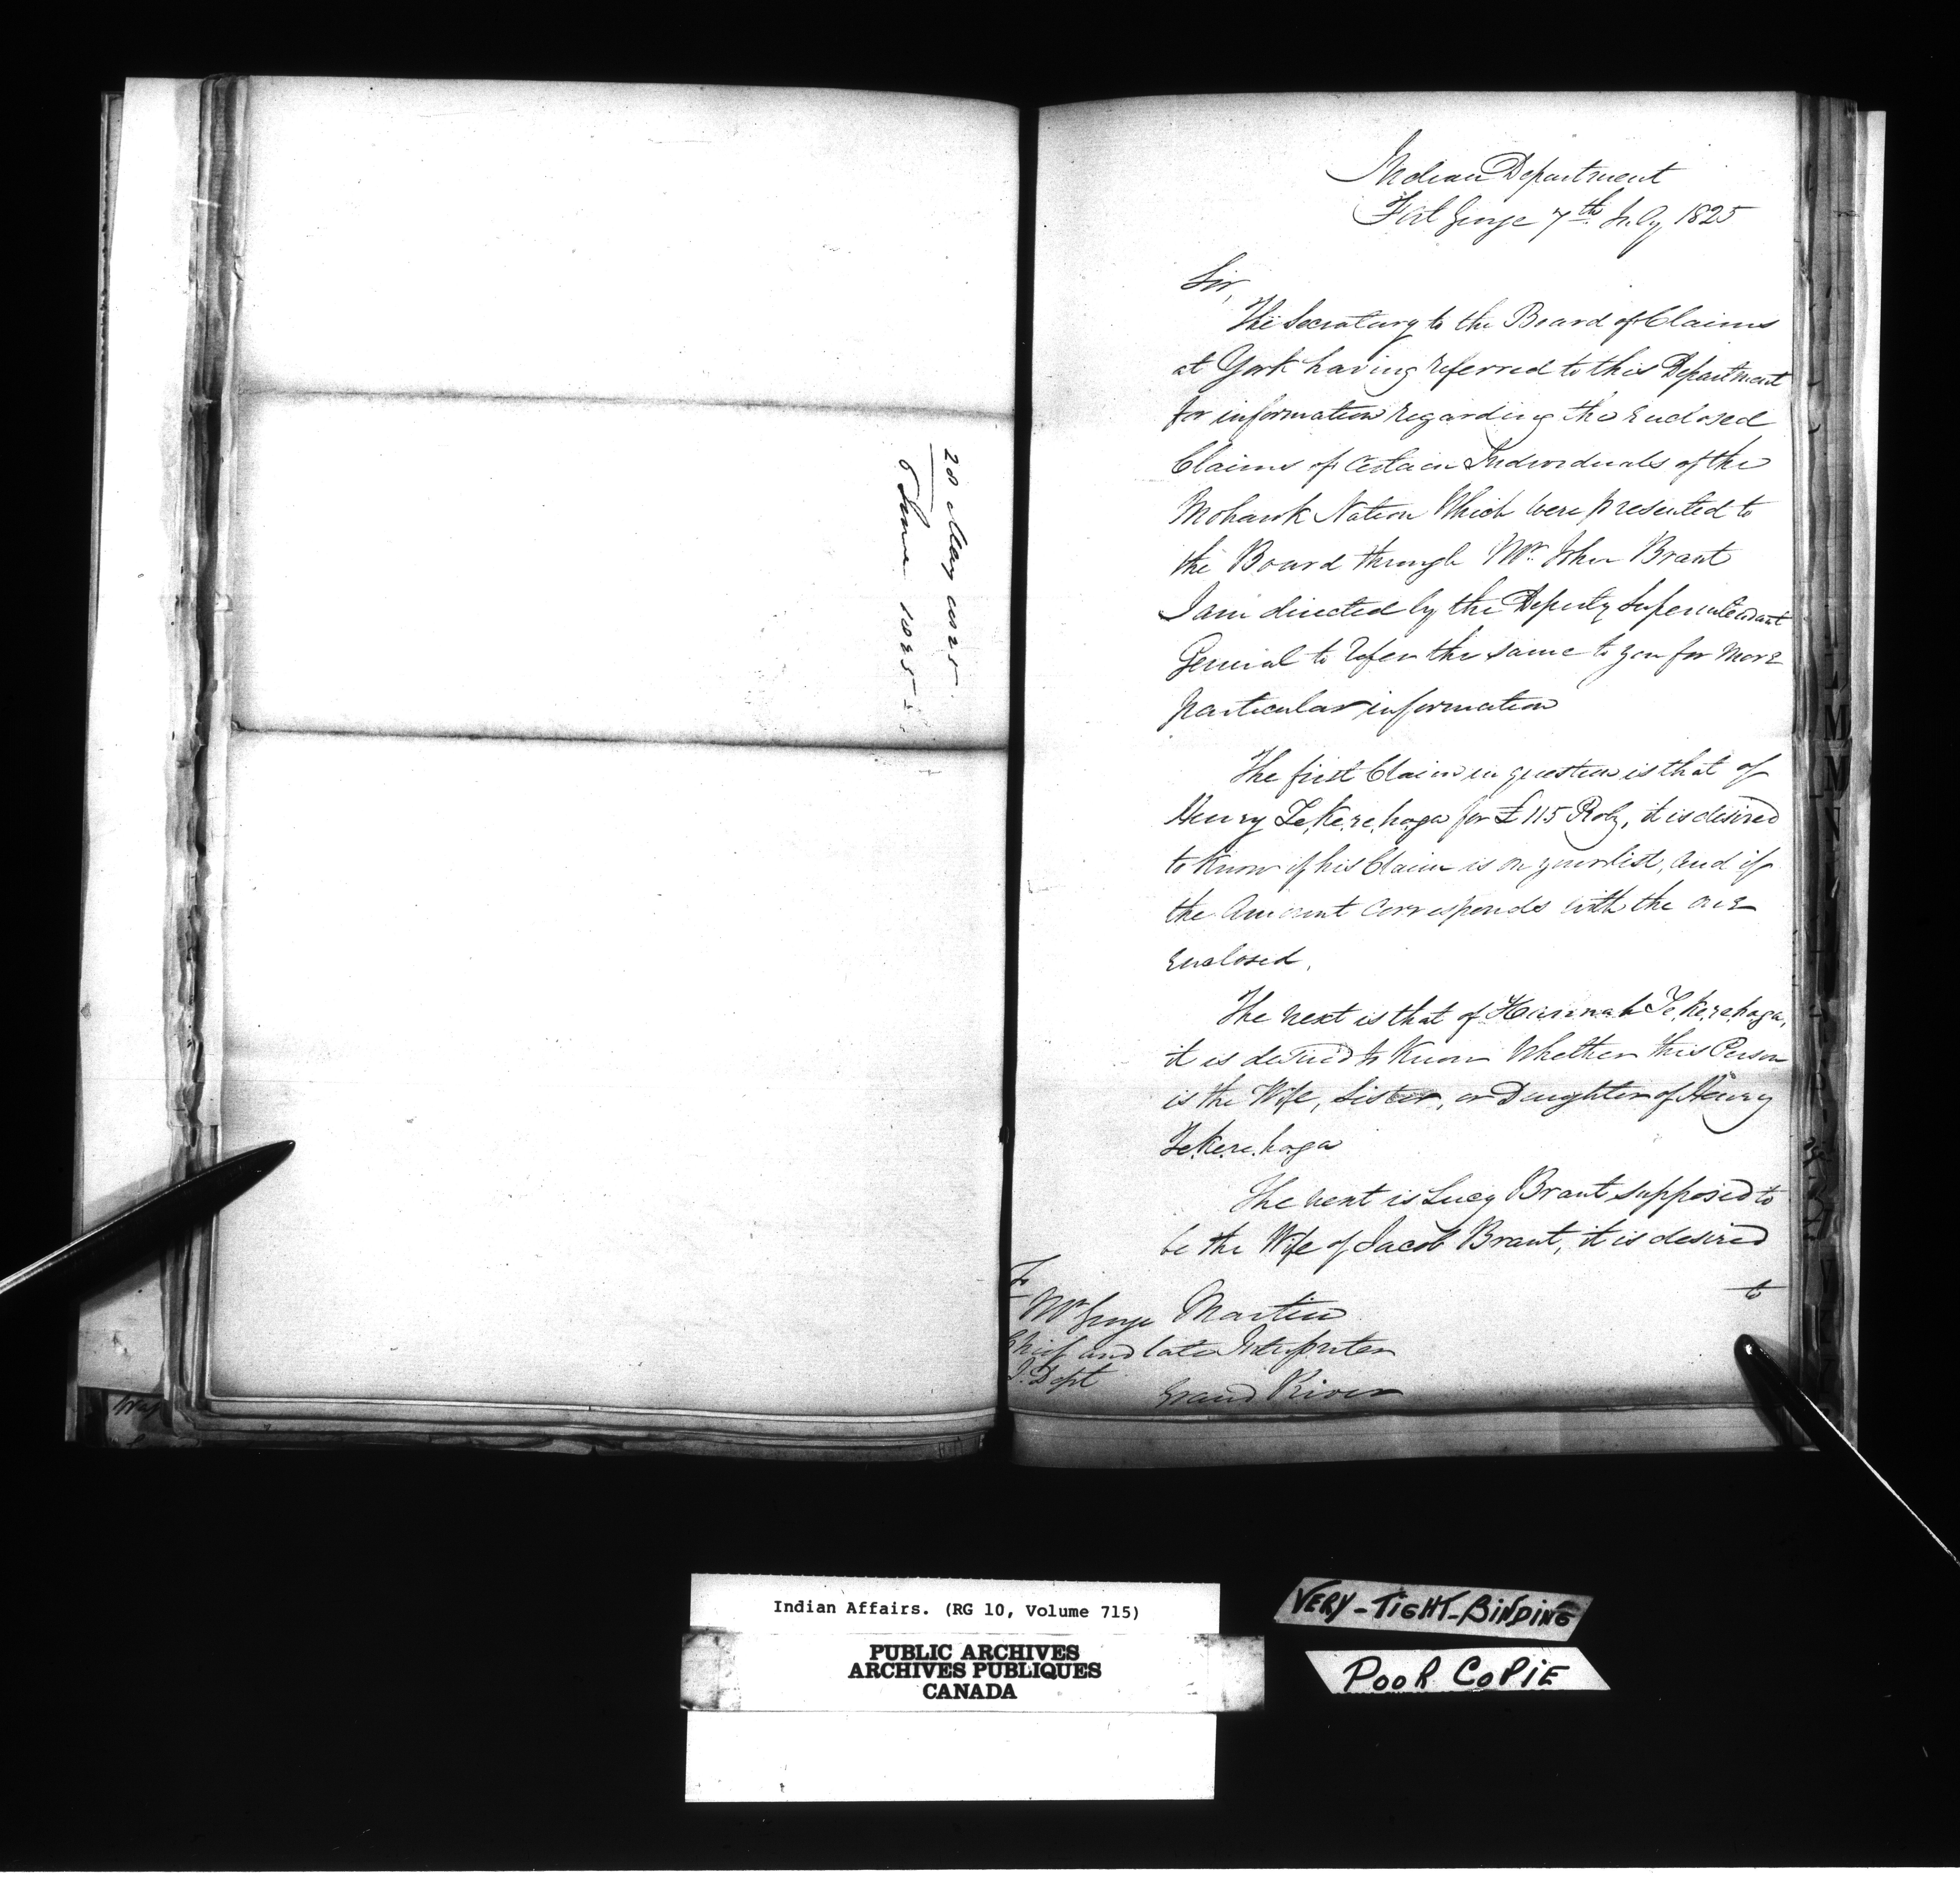 20 May 1825.
6 June 1825
Indian Department
Fort George 7th July 1825
Sir,
The Secretary to the Board of Claims
at York having referred to this Department
for information regarding the enclosed
Claims of Certain Individuals of the
Mohawk Nation Which were presented to
the Board through Mr. John Brant
I am directed by the Deputy Superintendant
General to refer the same to you for More
particular information
The first Claim in question is that of
Henry Te.ke.re.hoga for £115 it is desired
to know if his Claim is on your list, and if
the Amount Corresponds with the one
enclosed.
The next is that of Hannah Te.ke.re.hoga,
it is desired to Know Whether this Person
is the Wife, Sister, or Daughter of Henry
Te.ke.re.hoga
The next is Lucy Brant supposed to
be the Wife of Jacob Brant, it is desired
to
To
Mr George Martin
Chief and late Interpreter
I. Dept
Grand River
Indian Affairs. (RG 10, Volume 715)
PUBLIC ARCHIVES
ARCHIVES PUBLIQUES
CANADA
VERY-TIGHT-BINDING
POOR COPIE